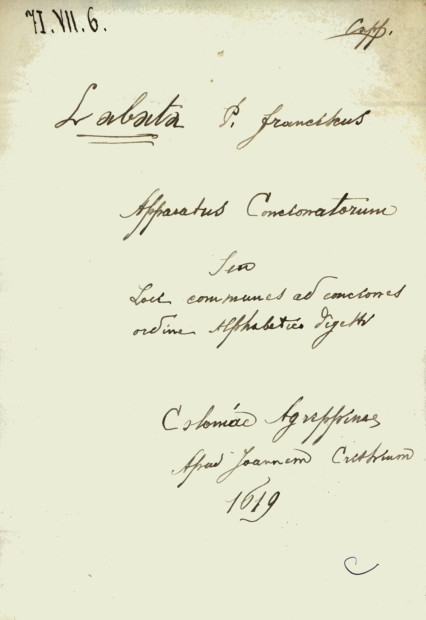 71.VII.6.
Capp.
Labata P. Franciskus
Apparatus Concionatorum
Seu
Loci communes ad conciones
ordine Alphabetico digesti
Coloniae Agrippinae
Apud Joannem Crithium
1619